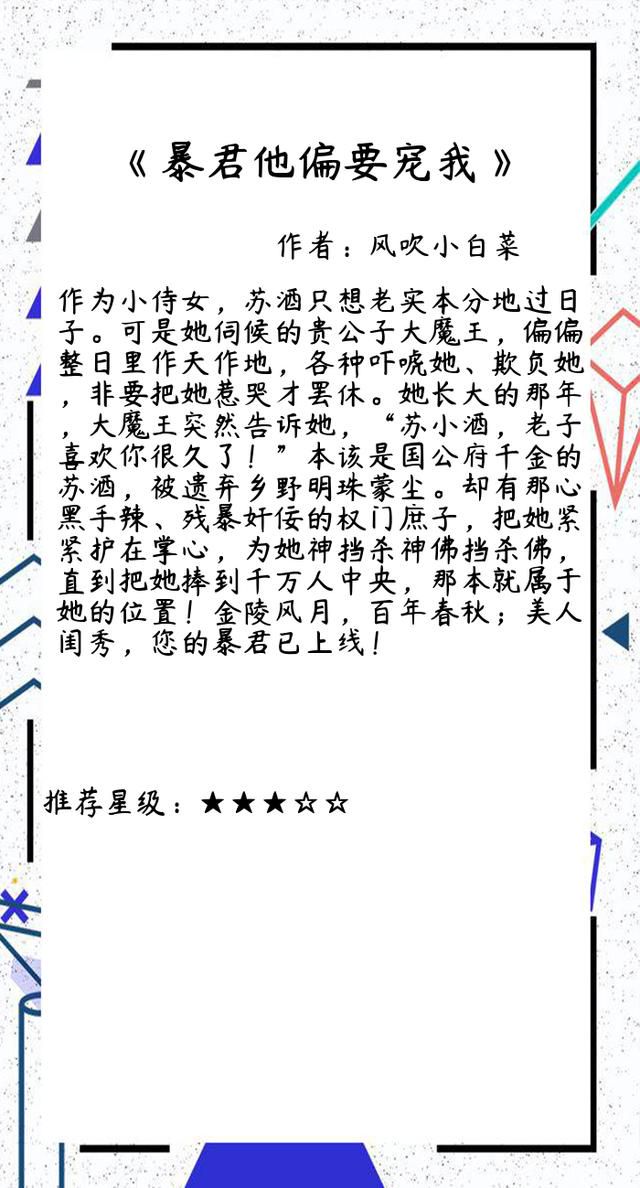 《暴君他偏要宠我》
作者：风吹小白菜
作为小侍女，苏酒只想老实本分地过日
子。可是她伺候的贵公子大魔王，偏偏
整日里作天作地，各种吓唬她、欺负她
，非要把她惹哭才罢休。她长大的那年
，大魔王突然告诉她，“苏小酒，老子
喜欢你很久了！”本该是国公府千金的
苏酒，被遗弃乡野明珠蒙尘。却有那心
黑手辣、残暴奸佞的权门庶子，把她紧
紧护在掌心，为她神挡杀神佛挡杀佛，
直到把她捧到千万人中央，那本就属于
她的位置！金陵风月，百年春秋；美人
闺秀，您的暴君已上线！
推荐星级：★★★☆☆